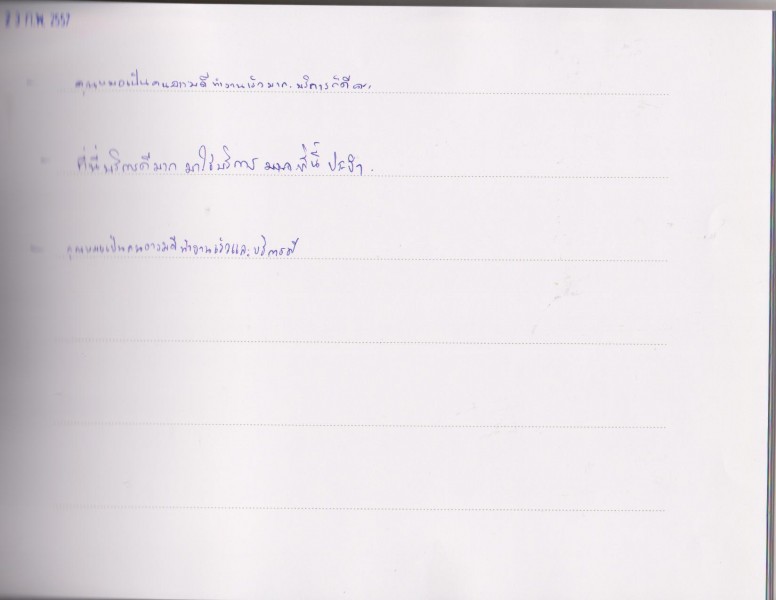 23 ก.พ. 2557
คุณหมอเป็นคนอารมดี ทำงานเร็วมาก บริการก็ดีค่ะ
ที่นี่บริการดีมาก มาใช้บริการ ที่นี้ ประจำ.
คุณหมอเป็นคนอารมดี ทำงานเร็วและบริการดี